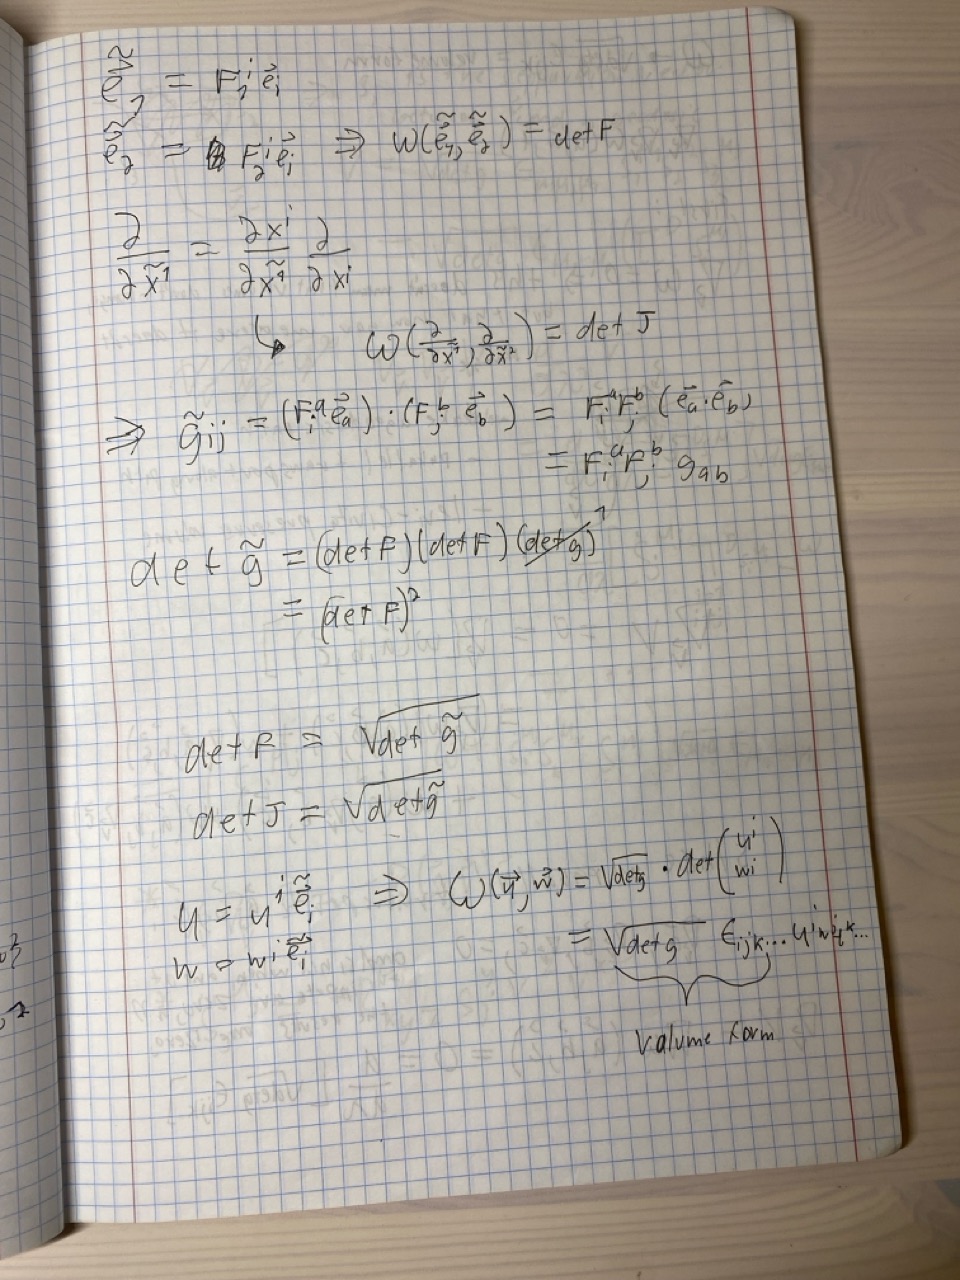 ẽ⃗₁ = F₁ⁱ e⃗ᵢ
ẽ⃗₂ = F₂ⁱ e⃗ᵢ ⇒ ω(ẽ⃗₁, ẽ⃗₂) = det F
∂/∂x̃¹ = ∂xⁱ/∂x̃¹ ∂/∂xⁱ
↳ ω(∂/∂x̃¹, ∂/∂x̃²) = det J
⇒ g̃ᵢⱼ = (Fᵢᵃ e⃗ₐ) · (Fⱼᵇ e⃗_b) = Fᵢᵃ Fⱼᵇ (e⃗ₐ · e⃗_b)
= Fᵢᵃ Fⱼᵇ g_ab
det g̃ = (det F)(det F)(det g)¹
= (det F)²
det F = √(det g̃)
det J = √(det g̃)
u = uⁱ ẽ⃗ᵢ ⇒ ω(u⃗, w⃗) = √(det g) · det(uⁱ wⁱ)
w = wⁱ ẽ⃗ᵢ
= √(det g) ϵᵢⱼₖ... uⁱ wʲ qᵏ...
volume form